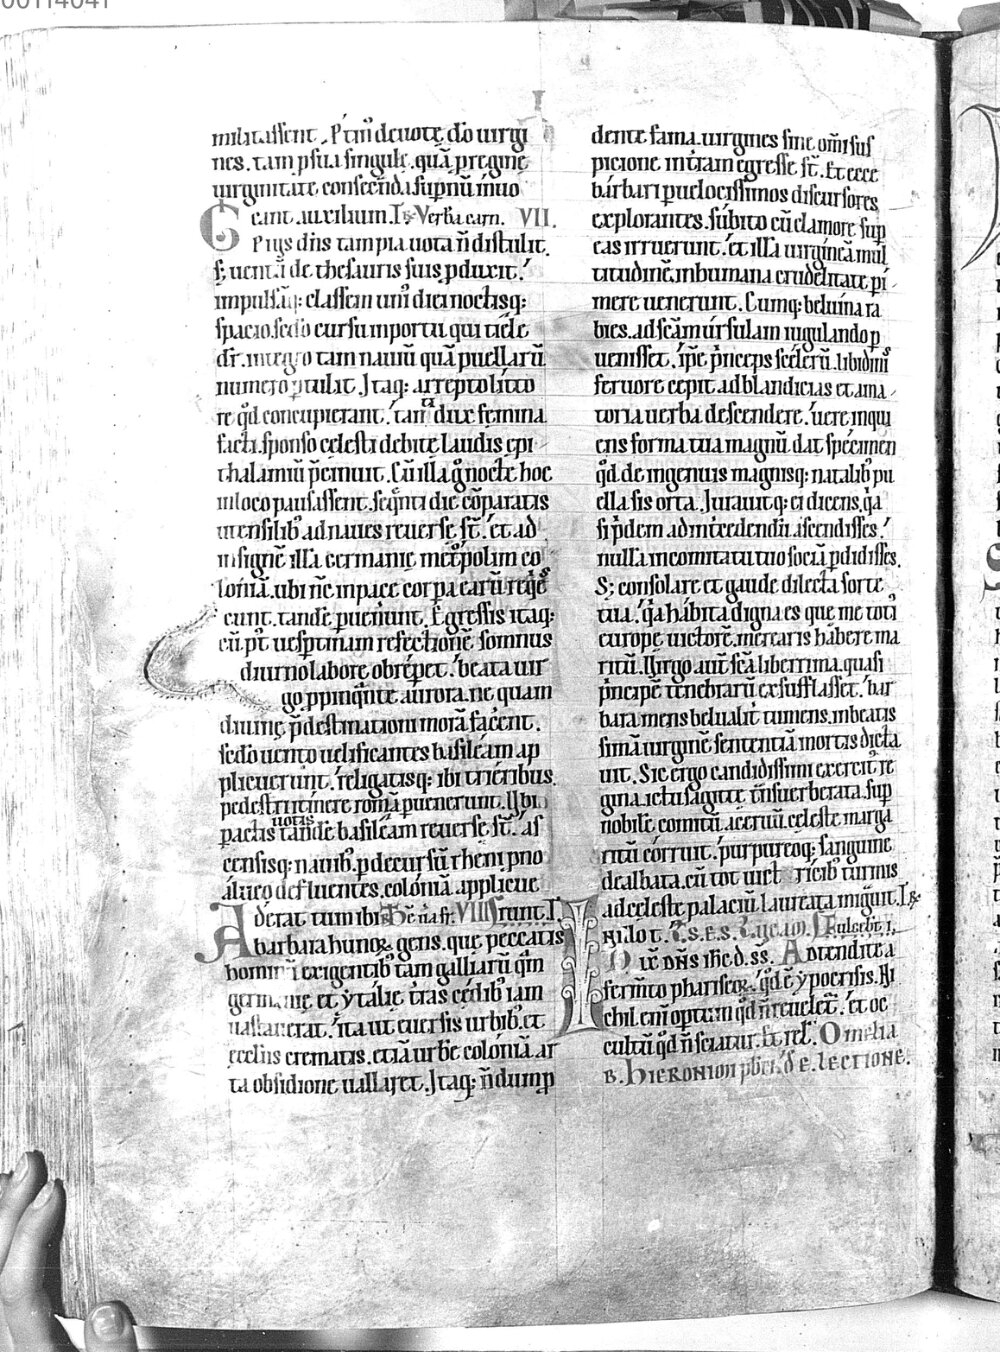 00114041
militassent. P̄ t̄m̄ deuotę. d̄o uirgi
nes. tam psua singulę. quā p regine
uirginitate consecr̄nda. sup̄nū inuo
cant auxilium. VII.
Pius d̄ns tam pia uota n̄ distulit.
s; uentū de thesauris suis pduxit.
impulsaq: classem uni diei noctisq:
spacio. secdo cursu in portu qui tiele
dr̄. integro tam nauiū quā puellarū
numero ptulit. Itaq: arrepto litto
re qd̄ concupierant. tanta dux femina
facti. sponso celesti debitę laudis epi
thalamiū p̄emuit. Cū illa g̊ nocte hoc
in loco pausassent. seqnti die cōparatis
utensilib; ad naues reuerse st̄. et ad
insignē illā germanie metpolim co
loniā. ubi n̄c in pace corpa earū reqes
cunt. tandē puenīunt. Egressis itaq:
cū. p̄t uesptinam refectionē somnus
diurno labore obrepet. beata uir
go ppinqute aurora. ne quam
diuinę p̄destinationi morā facent.
secdo uento uelificantes basileam ap
plicuerunt. religatisq: ibi trieribus.
pedestri itinere romā puenerunt. Ubi
pactis uotis tandē basileam reuerse st̄. as
censisq: nauib; p decursū rheni pno
alueo defluentes. colóniā applicue
runt. VIII
Aderat tum ibi
barbara hunoꝝ gens. que peccatis
hominū exigentib; tam galliarū qm̄
germanię. et ytalię t̄ras cedib; iam
uastauerat. ita ut euersis urbib; et
ecclīis crematis. etiā urbē colóniā ar
ta obsidione uallaret. Itaq: n̄dum p
dente fama. uirgines sine om̄i sus
picione in t̄ram egresse st̄. Et ecce
barbari pueloclissimos discursores
explorantes. súbito cū clamore sup
eas irruerunt. et illā uirgineā mul
titudinē inhumana crudelitate pi
mere uenerunt. Cumq: beluina ra
bies. ad sc̄am úrsulam iugulando p
uenisset. ip̄e p̄nceps scelerū. libidinis
feruore cepit. ad blandicias et ama
toria uerba descendere. uere inqui
ens forma tua magnū dat spécimen
qd̄ de ingenuis magnisq: natalib; pu
ella sis orta. Iurauitq: ei dicens. qa
si p̄dem ad me intcedendū ascendisses.
nulla in comitatu tuo sociā pdidisses.
S; consolare et gaude dilecta sorte
tua. qa hábita digna es que me toti
europe uictorē. merearis habere ma
ritū. Uirgo aut̄ sc̄a liberrima. quasi
p̄ncipē tenebrarū exsufflasset. bar
bara mens belualit tumens. in beatis
simā uirginē sententiā mortis dicta
uit. Sic ergo candidissimi exercit̄ re
gina. ictu sagittę t̄nsuerberata. sup
nobilē comitū aceruū. celeste marga
ritū córruit. purpureoq: sanguine
dealbata. cū tot uictricib; turmis
ad celeste palaciū laureata migrauit.
IN illo t.
Dix̄ dn̄s ihc̄. d. ss. Adtendite a
fermto phariseoꝝ. qd̄ ē ypocrisis. Ni
chil enī optum qd̄ n̄ reuelet̄. et oc
cultū qd̄ n̄ sciatur. Et rel̄. Omelia
B. HIERONIMI pbri. DE. LECTIONE.